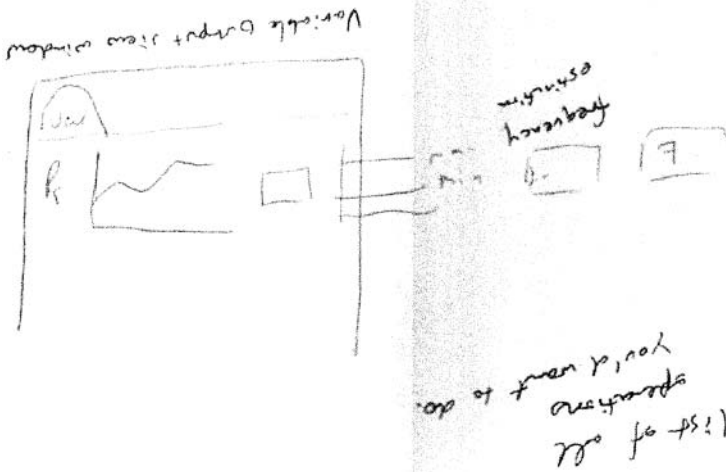 Variable Output view window
frequency
estimation
min
list of all
operations
you'd want to do.